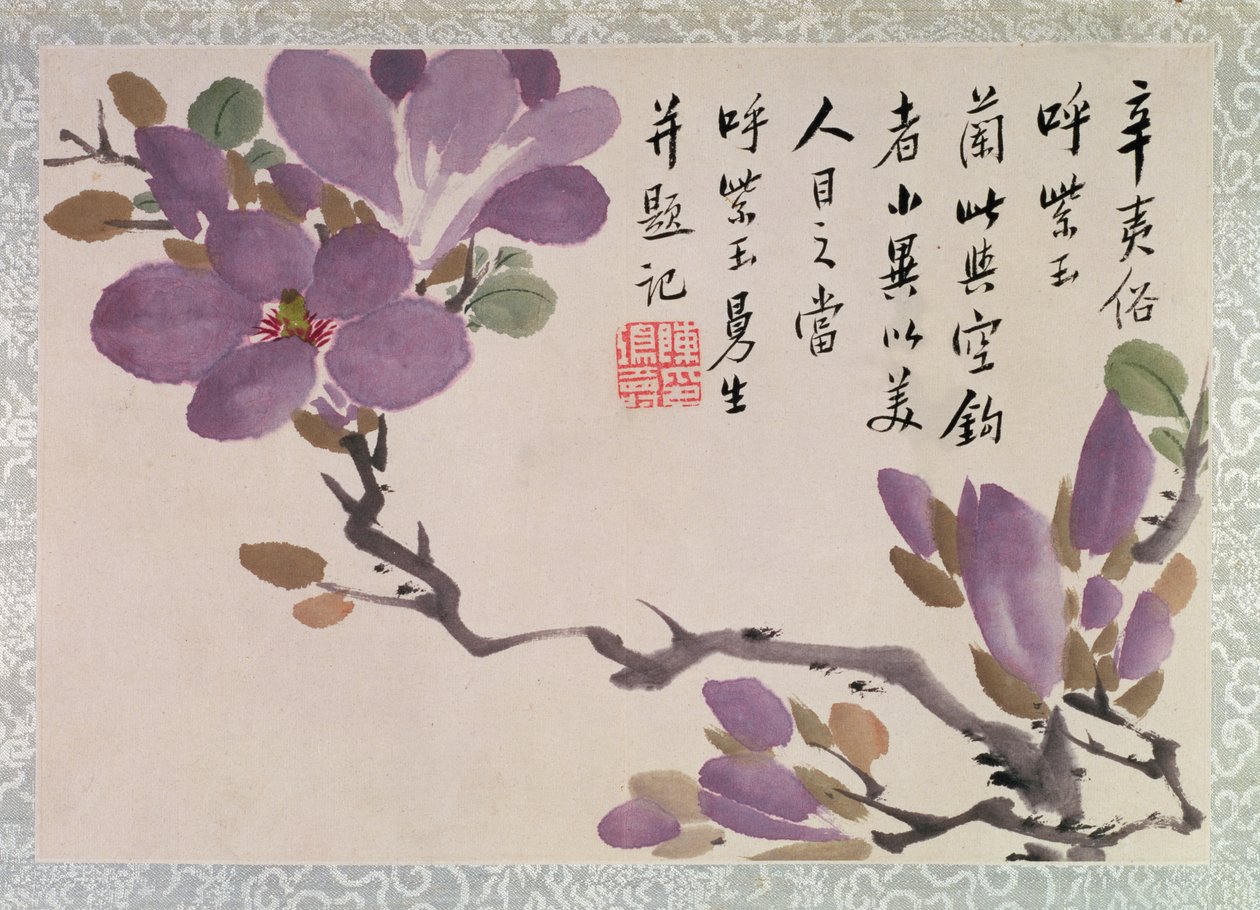 辛夷俗
呼紫玉
蘭此與空鈎
者小異以美
人目之當
呼紫玉 曼生
并題記
陳鴻壽印